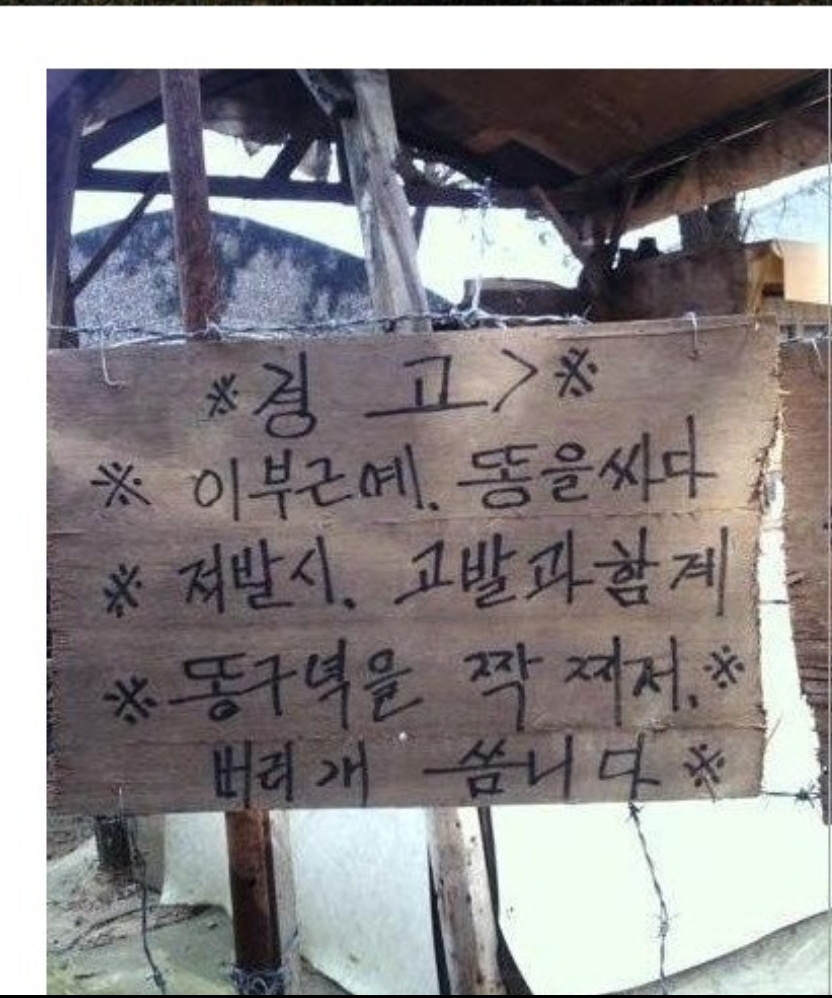 ※경 고>※
※ 이부근에. 똥을싸다
※ 적발시. 고발과함계
※똥구녁을 짝 찌저.※
버리개 씀니다※